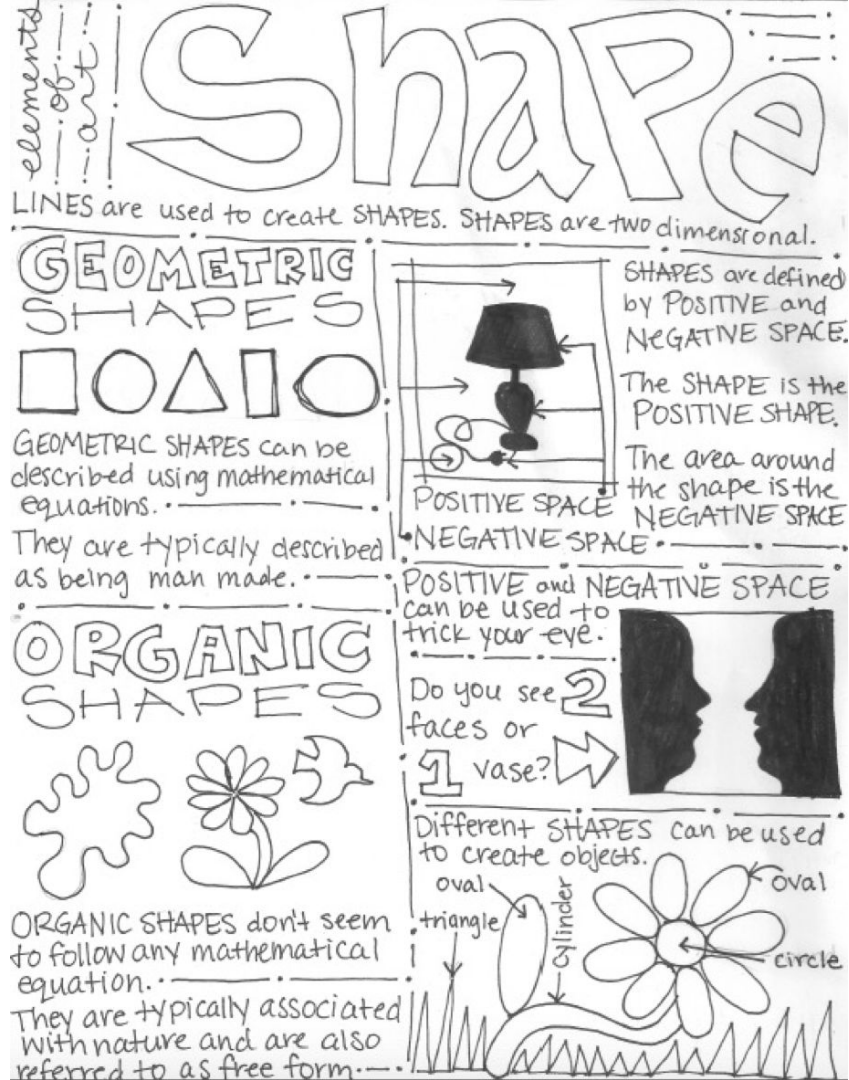 elements
of
art
Shape
LINES are used to create SHAPES. SHAPES are two dimensional.
GEOMETRIC
SHAPES
GEOMETRIC SHAPES can be
described using mathematical
equations.
They are typically described
as being man made.
ORGANIC
SHAPES
ORGANIC SHAPES don't seem
to follow any mathematical
equation.
They are typically associated
with nature and are also
referred to as free form.
SHAPES are defined
by POSITIVE and
NEGATIVE SPACE.
The SHAPE is the
POSITIVE SHAPE.
The area around
the shape is the
NEGATIVE SPACE
POSITIVE SPACE
NEGATIVE SPACE
POSITIVE and NEGATIVE SPACE
can be used to
trick your eye.
Do you see 2
faces or
1 vase?
Different SHAPES can be used
to create objects.
oval
triangle
cylinder
oval
circle